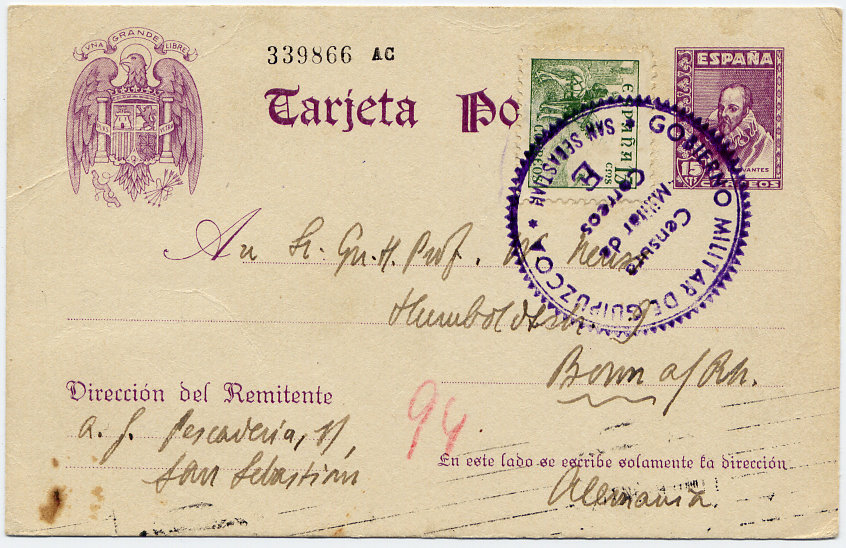 UNA GRANDE LIBRE
339866 AC
Tarjeta Po
ESPAÑA
15
CERVANTES
CORREOS
ESPAÑA 15
CTS
CORREOS
GOBIERNO MILITAR DE GUIPUZCOA
SAN SEBASTIAN
Censura
Militar de
Correos
E
An Sr. Prof. W.
Humboldtstr.
Bonn a/Rh.
Dirección del Remitente
94
Pescaderia,
San Sebastian
En este lado se escribe solamente la dirección
Alemania.